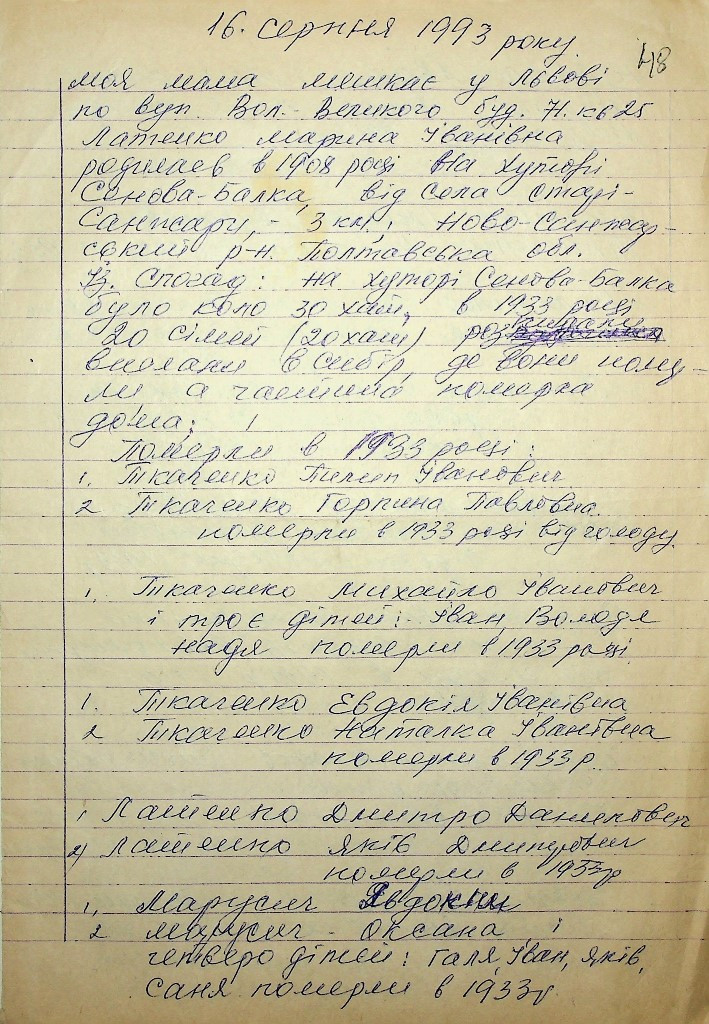 16. серпня 1993 року.
48
моя мама мешкає у Львові
по вул. Вол.-Великого буд. 71. кв 25
Латенко Марина Іванівна
родилась в 1908 році на хуторі
Сенова-Балка, від села Старі-
Санжару, - 3 км., Ново-Санжар-
ський р-н. Полтавська обл.
Із. спогад: на хуторі Сенова-Балка
було коло 30 хат, в 1933 році
20 сімей (20 хат)
вислани в Сибір, де вони
ли а частина померла
дома;
Померли в 1933 році:
1. Ткаченко Пилип Іванович
2 Ткаченко Горпина Павловна.
померли в 1933 році від голоду.
1. Ткаченко Михайло Іванович
і троє дітей: Іван Володя
Надя померли в 1933 році.
1. Ткаченко Евдокія Іванівна
2 Ткаченко Наталка Іванівна
померли в 1933 р.
1 Латенко Дмитро Данилович
2) Латенко Яків Дмитрович
померли в 1933р
1, Марусич Явдоким
2 Марусич - Оксана і
четверо дітей: Галя, Іван, Яків,
Саня померли в 1933р.